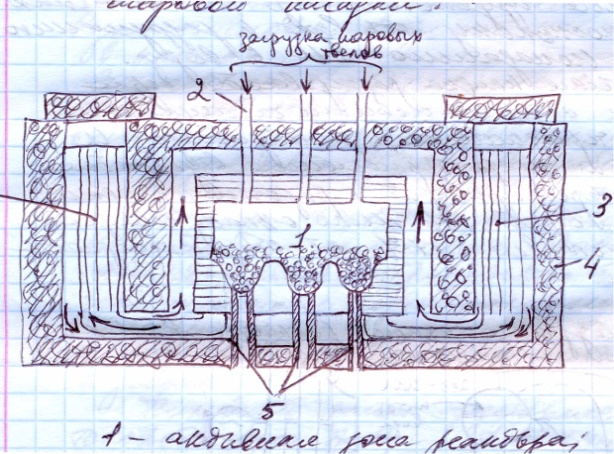 шаровой насадки.
загрузка шаровых
твелов
2
1
3
4
5
1 - активная зона реактора;